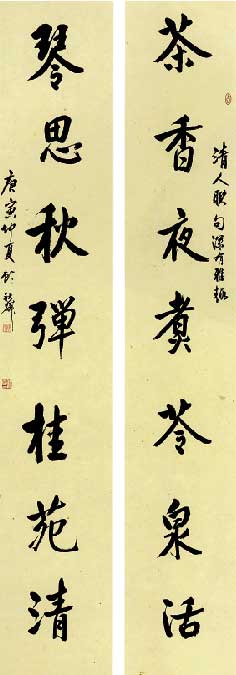 茶香夜煮苓泉活
清人联句深有雅趣
琴思秋弹桂苑清
庚寅仲夏